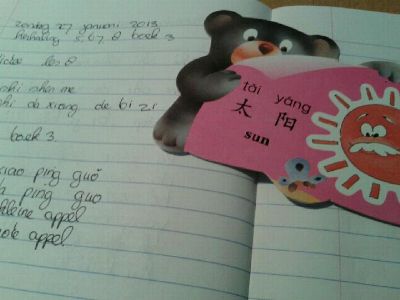 zondag 27 januari 2013
herhaling 5, 6, 7, 8 boek 3
les 8
shi shen me
shi da xiang de bi zi
boek 3
xiao ping guǒ
da ping guo
kleine appel
grote appel
tài yáng
太 阳
sun